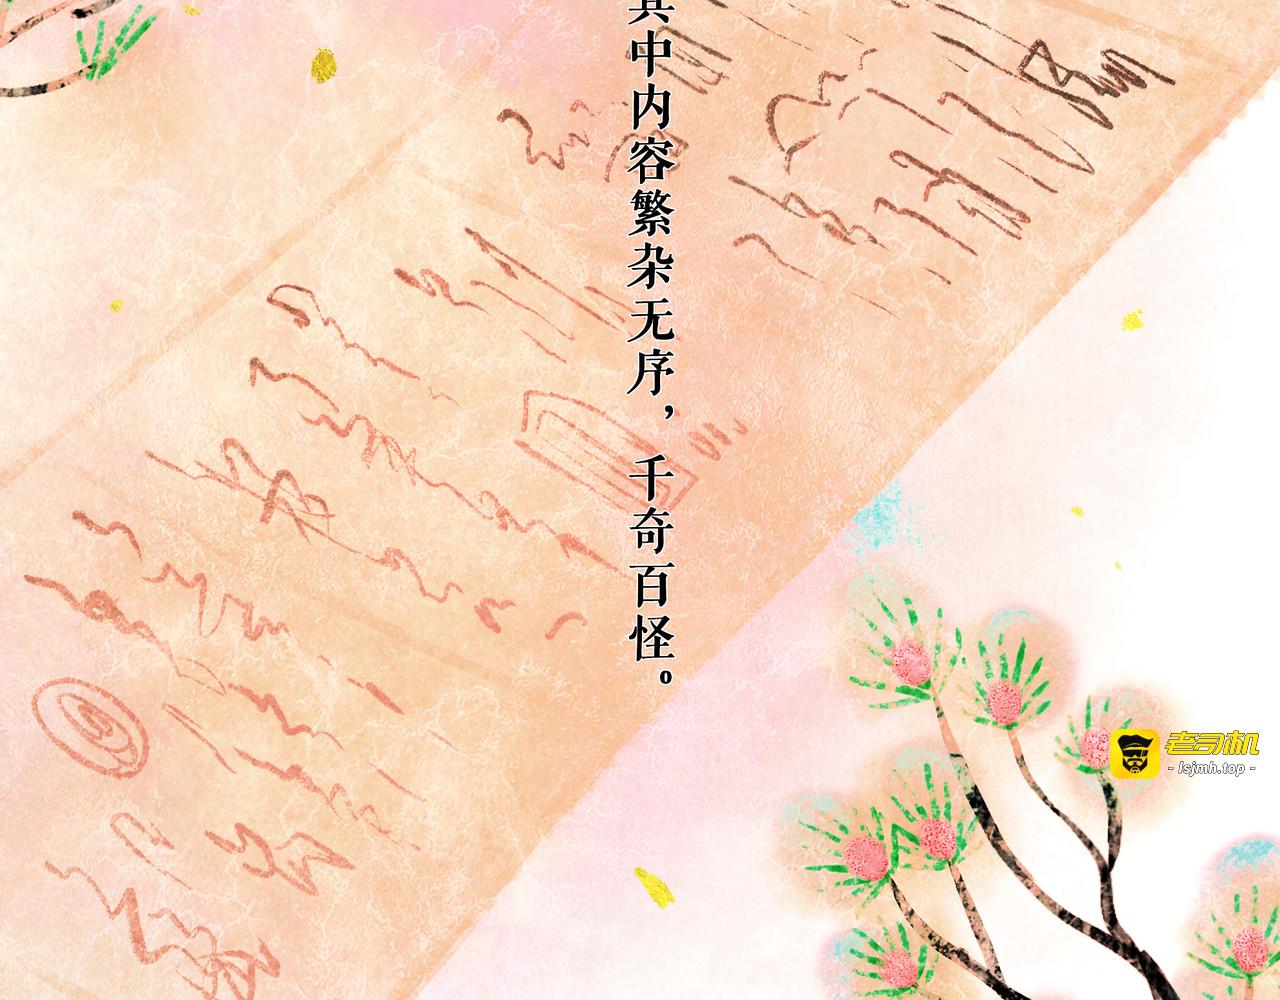 其中内容繁杂无序，千奇百怪。
老司机
- lsjmh.top -